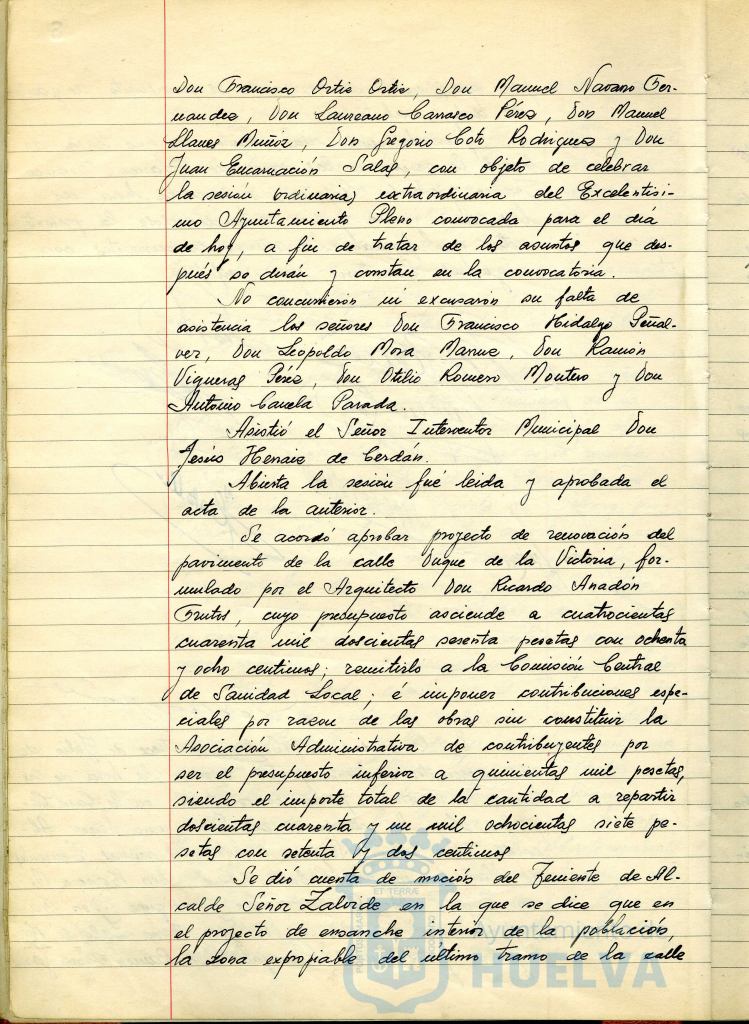 Don Francisco Ortiz Ortiz, Don Manuel Navarro Fer-
nandez, Don Laureano Carrasco Pérez, Don Manuel
Llanes Muñoz, Don Gregorio Coto Rodriguez y Don
Juan Encarnación Salas, con objeto de celebrar
la sesión (ordinaria) extraordinaria del Excelentisi-
mo Ayuntamiento Pleno convocada para el día
de hoy, a fin de tratar de los asuntos que des-
pués se dirán y constan en la convocatoria.
No concurrieron ni excusaron su falta de
asistencia los señores Don Francisco Hidalgo Peñal-
ver, Don Leopoldo Mora Don Ramón
Vigueras Pérez, Don Otilio Romero Montero y Don
Antonio Canela Parada.
Asistió el Señor Interventor Municipal Don
Jesús Henaiz de Cerdán.
Abierta la sesión fué leida y aprobada el
acta de la anterior.
Se acordó aprobar proyecto de renovación del
pavimento de la calle Duque de la Victoria, for-
mulado por el Arquitecto Don Ricardo Anadón
Frutos, cuyo presupuesto asciende a cuatrocientas
cuarenta mil doscientas sesenta pesetas con ochenta
y ocho centimos; remitirlo a la Comisión Central
de Sanidad Local; é imponer contribuciones espe-
ciales por razon de las obras sin constituir la
Asociación Administrativa de contribuyentes por
ser el presupuesto inferior a quinientas mil pesetas,
siendo el importe total de la cantidad a repartir
doscientas cuarenta y un mil ochocientas siete pe-
setas con setenta y dos centimos
Se dió cuenta de moción del Teniente de Al-
calde Señor Zalvide en la que se dice que en
el projecto de ensanche interior de la población,
la zona expropiable del último tramo de la calle
Ayuntamiento
HUELVA